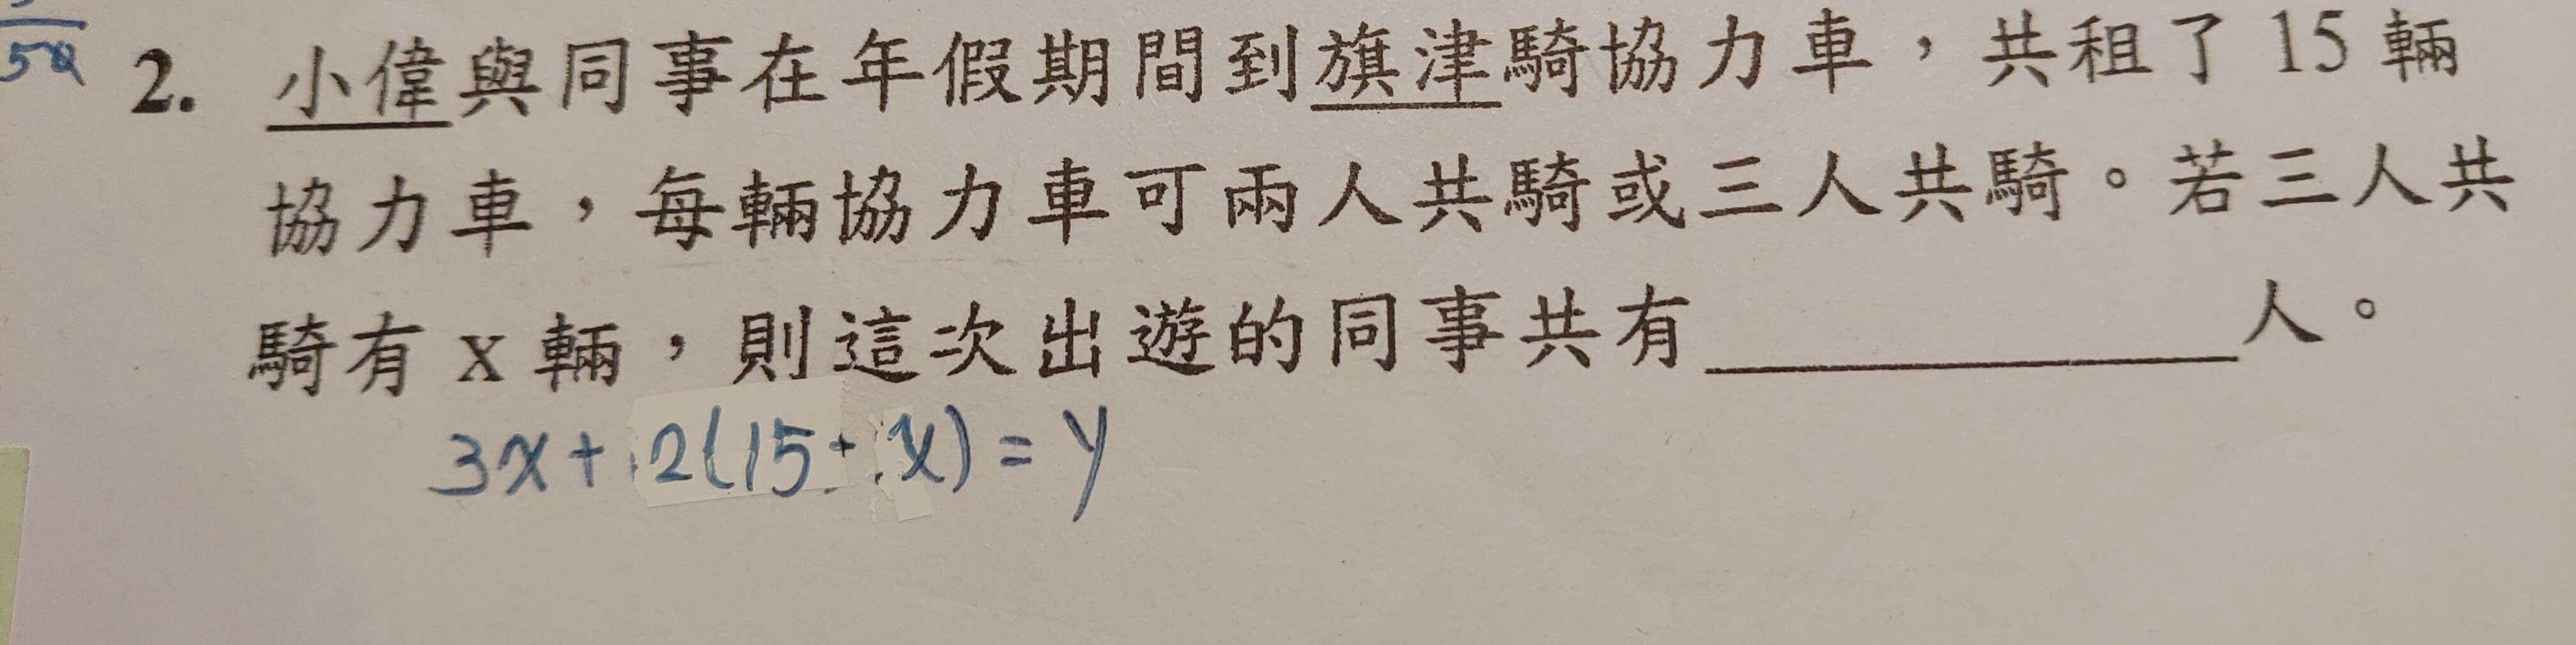 50
2. 小偉與同事在年假期間到旗津騎協力車，共租了 15 輛
協力車，每輛協力車可兩人共騎或三人共騎。若三人共
騎有 x 輛，則這次出遊的同事共有＿＿＿＿＿＿人。
3x + 2(15 - x) = y